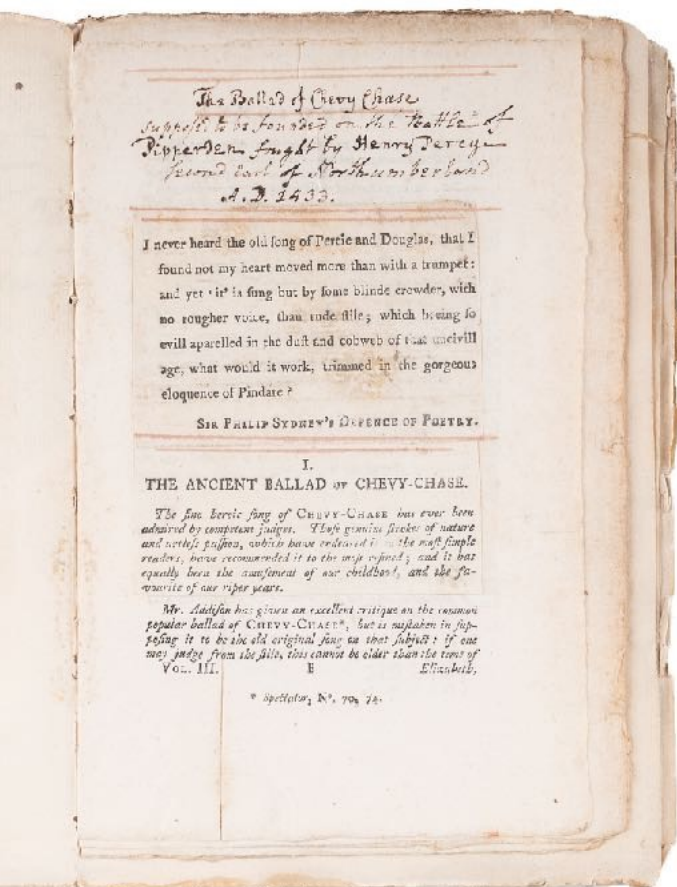 The Ballad of Chevy Chase
suppos'd to be founded on the Battle of
Pipperden fought by Henry Percy
second Earl of Northumberland
A.D. 1433.
I never heard the old ſong of Percie and Douglas, that I
found not my heart moved more than with a trumpet:
and yet ‘it’ is ſung but by ſome blinde crowder, with
no rougher voice, than rude ſtile; which beeing ſo
evill aparelled in the duſt and cobweb of that uncivill
age, what would it work, trimmed in the gorgeous
eloquence of Pindare?
SIR PHILIP SYDNEY'S DEFENCE OF POETRY.
I.
THE ANCIENT BALLAD OF CHEVY-CHASE.
The fine heroic ſong of CHEVY-CHASE has ever been
admired by competent judges. Thoſe genuine ſtrokes of nature
and artleſs paſſion, which have endeared it to the moſt ſimple
readers, have recommended it to the moſt refined; and it has
equally been the amuſement of our childhood, and the fa-
vourite of our riper years.
Mr. Addiſon has given an excellent critique on the common
popular ballad of CHEVY-CHASE*, but is miſtaken in ſup-
poſing it to be the old original ſong on that ſubject: if one
may judge from the ſtile, this cannot be older than the time of
VOL. III. E Elizabeth,
* Spectator, Nº. 70, 74.